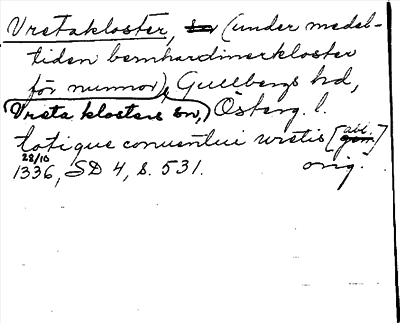 Vretakloster, sn (under medel-
tiden bernhardinerkloster
för nunnor), Gullbergs hd,
Vreta klosters sn, Österg. l.
totique conuentui wretis [abl. gen.]
28/10 orig.
1336, SD 4, s. 531.